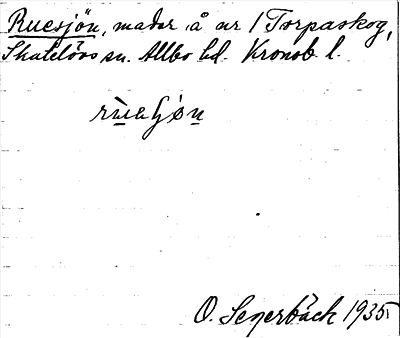 Ruesjön, madar å ur 1 Torpaskog,
Skatelövs sn. Allbo hd. Kronob. l.
O. Segerbäck 1935